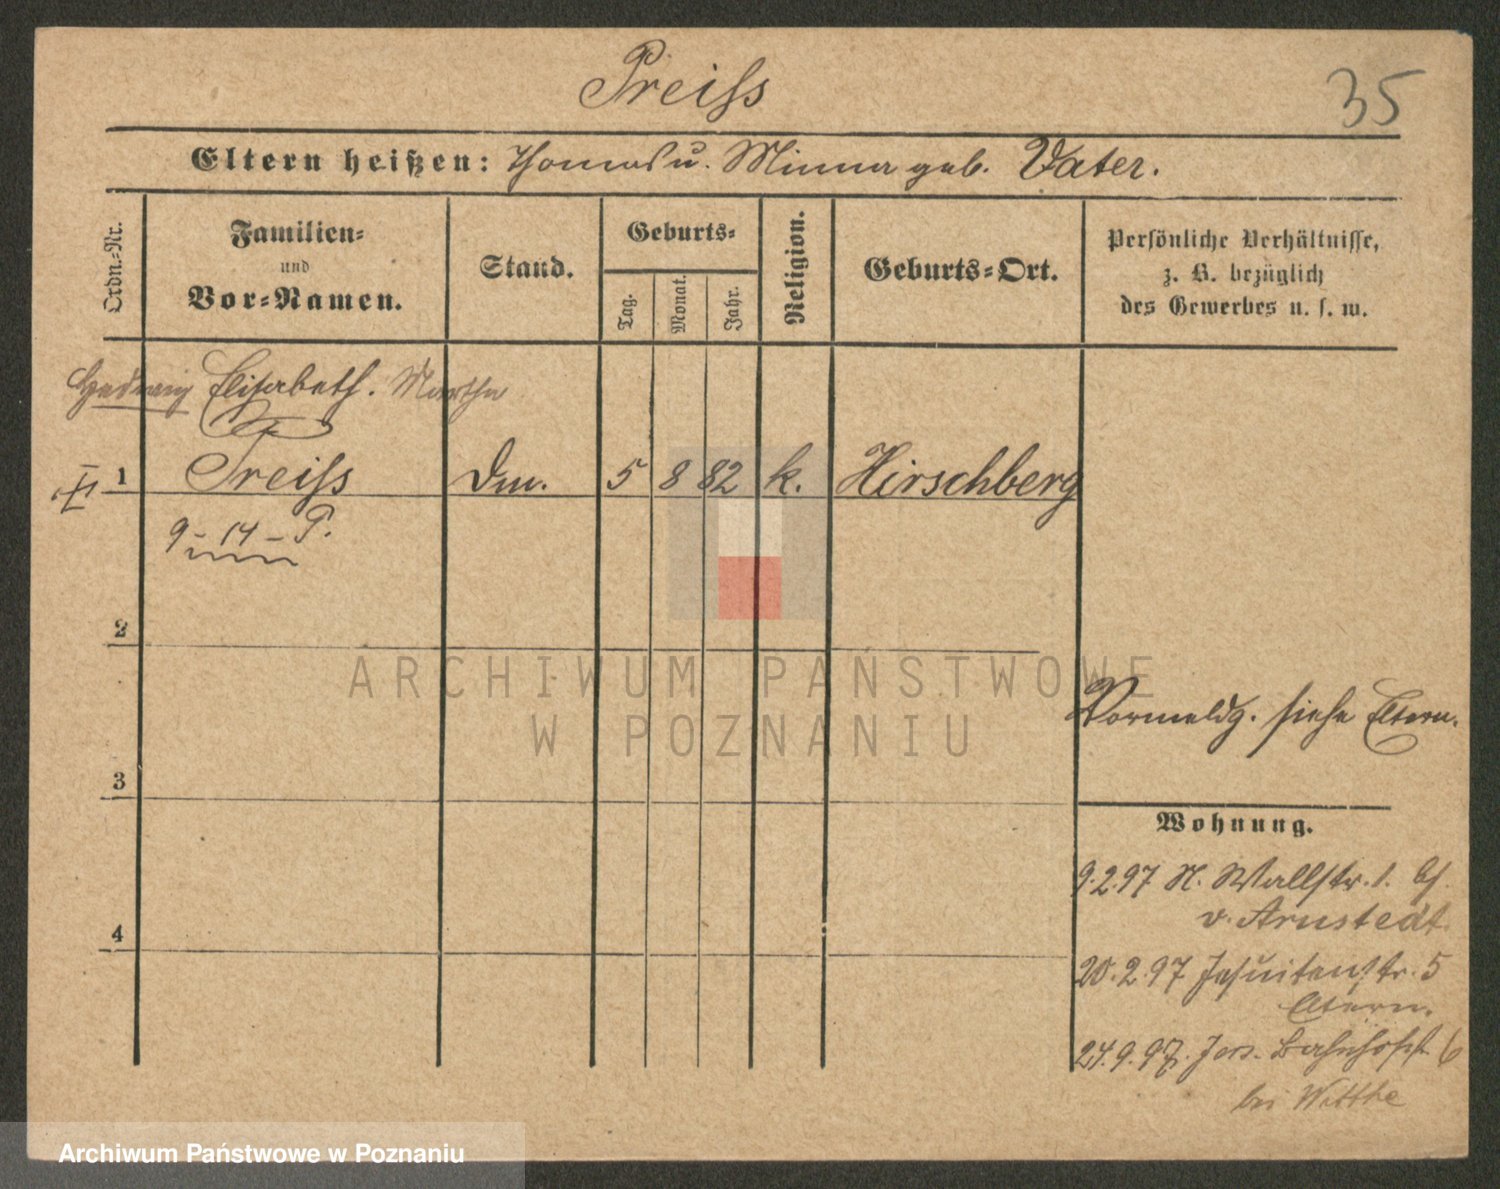 Preiss
35
Eltern heißen: Thomas u. Minna geb. Vater.
Ordn.-Nr.
Familien-
und
Vor-Namen.
Stand.
Geburts-
Tag.
Monat.
Jahr.
Religion.
Geburts-Ort.
Persönliche Verhältnisse,
z. B. bezüglich
des Gewerbes u. s. w.
Hedwig Elisabeth. Martha
1 Preiss 5 8 82 k. Hirschberg
9 - 14 - P.
2
ARCHIWUM PAŃSTWOWE
W POZNANIU
Vormeldg. siehe Eltern.
3
Wohnung.
9.2.97 N. Wallstr. 1. bf.
v. Arnstedt.
4
20.2.97 Jesuitenstr. 5
Eltern.
24.9.97. Jers. Bahnhofst. 6
bei Witthe
Archiwum Państwowe w Poznaniu